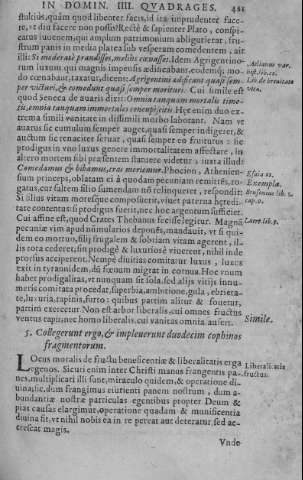 IN DOMIN. IIII. QVADRAGES. 421
stultius, quàm quod libenter facis, id ita imprudenter face-
re, vt diu facere non possis? Rectè & sapienter Plato, conspi-
catus iuuenem, qui amplum patrimonium abligurierat, fru-
strum panis in media platea sub vesperam comedentem, ait
illi: Si moderatè prandisses, meliùs cœnasses. Idem Agrigentino-
rum luxui, qui magnis impensis ædificabant, eodemque mo-
do cœnabant, taxauit, dicens: Agrigentini ædificant quasi sem-
per victuri, & comedunt quasi semper morituri. Cui simile est
quod Seneca de auaris dixit: Omnia tanquam mortales time-
tis, omnia tanquam immortales concupiscitis. Hæc enim duo ex-
trema simili vanitate in dissimili morbo laborant. Nam vt
auarus sic cumulum semper auget, quasi semper indigeret, &
auctum sic tenaciter seruat, quasi semper eo fruiturus: he
prodigus in vno luxus genere immortalitatem affectare, in
altero mortem sibi præsentem statuere videtur: iuxta illud:
Comedamus & bibamus, cras moriemur. Phocion, Athenien-
sium princeps, oblatam ei à quodam pecuniam remittēs, co-
gatus, eur saltem filio sumendam nō relinqueret, respondit:
Si filius vitam moresque composuerit, viuet paterna heredi-
tate contentus: si prodigus fuerit, nec hoc argentum sufficiet.
Cui affine est, quod Crates Thebanus fecisse legitur. Magnā
pecuniæ vim apud nūmularios deponēs, mandauit, vt si qui-
dem eo mortuo, filij frugalem & sobriam vitam agerent, il-
lis tota cederet, sit prodigè & luxuriosè viuerent, nihil inde
prorsus acciperent. Nempè diuitias comitatur luxus, luxus
exit in tyrannidem, dū fœnum migrat in cornua. Hoc vnum
habet prodigalitas, vt nunquam sit sola, sed alijs vitijs innu-
meris comitata procedat, superbia, ambitione, gula, ebrieta-
te, luxuria, rapinis, furto: quibus partim alitur & fouetur,
partim exercetur. Non est arbor liberalis, cui omnes fructus
ventus rapit, nec homo liberalis, cui vanitas omnia aufert.
Aelian. var.
hist. lib. 12.
Exempla.
cap. 9.
Laert. lib. 7.
Simile.
5. Collegerunt ergo, & impleuerunt duodecim cophinos
fragmentorum.
LOcus moralis de fructu beneficentiæ & liberalitatis erga
egenos. Sicuti enim inter Christi manus frangentis pa-
nes, multiplicati illi sunt, miraculo quidem, & operatione di-
uina: sic, dum frangimus esurienti panem nostrum, dum a-
bundantiæ nostræ particulas egentibus propter Deum &
pias causas elargimur, operatione quadam & munificentia
diuina fit, vt nihil nobis ea in re pereat aut deteratur, sed ac-
crescat magis.
Liberalitatis
fructus.
Vnde